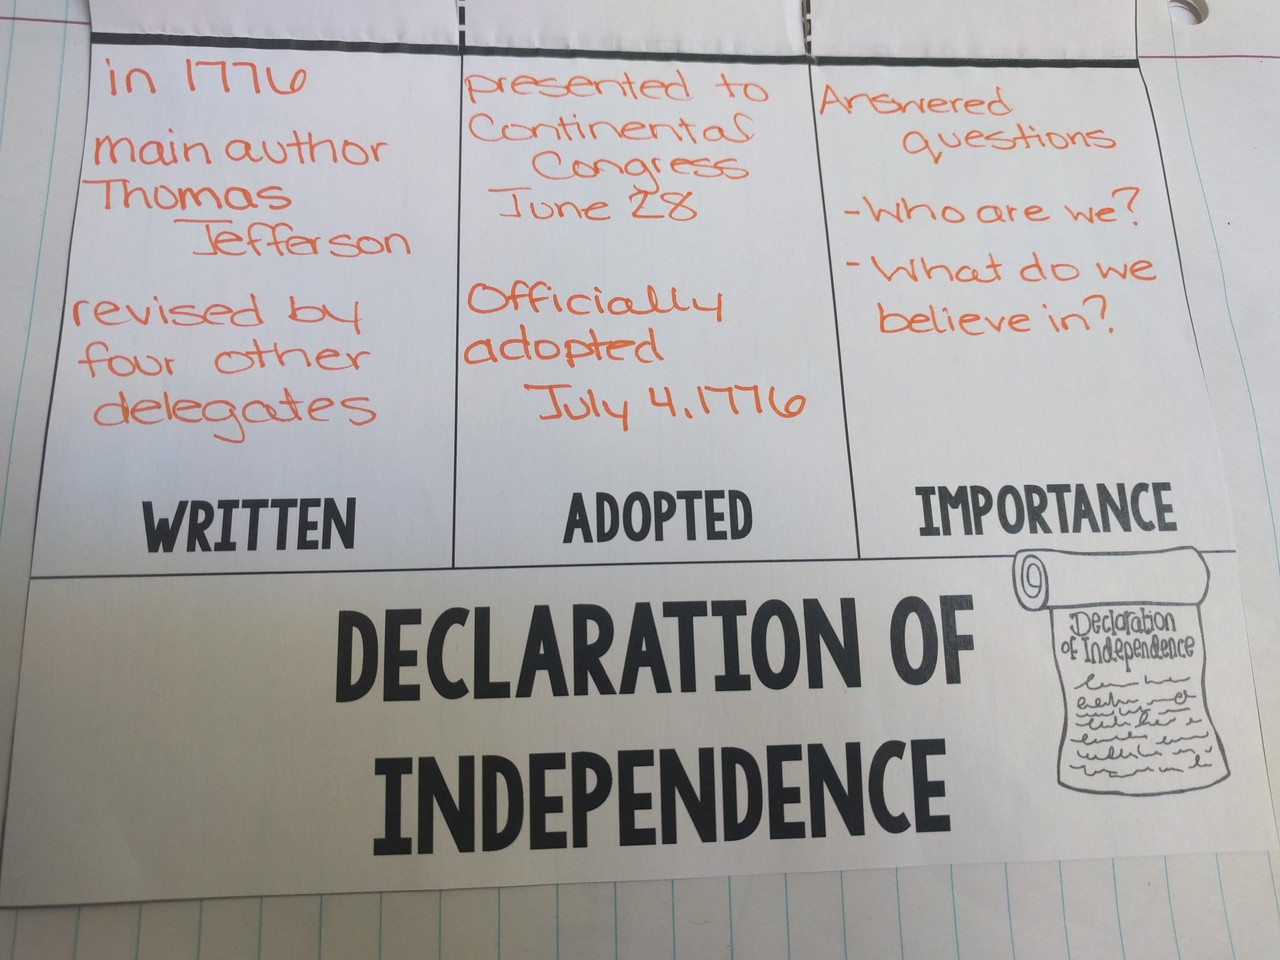 in 1776
main author
Thomas
Jefferson
revised by
four other
delegates
WRITTEN
presented to
Continental
Congress
June 28
Officially
adopted
July 4, 1776
ADOPTED
Answered
questions
- Who are we?
- What do we
believe in?
IMPORTANCE
DECLARATION OF
INDEPENDENCE
Declaration
of Independence